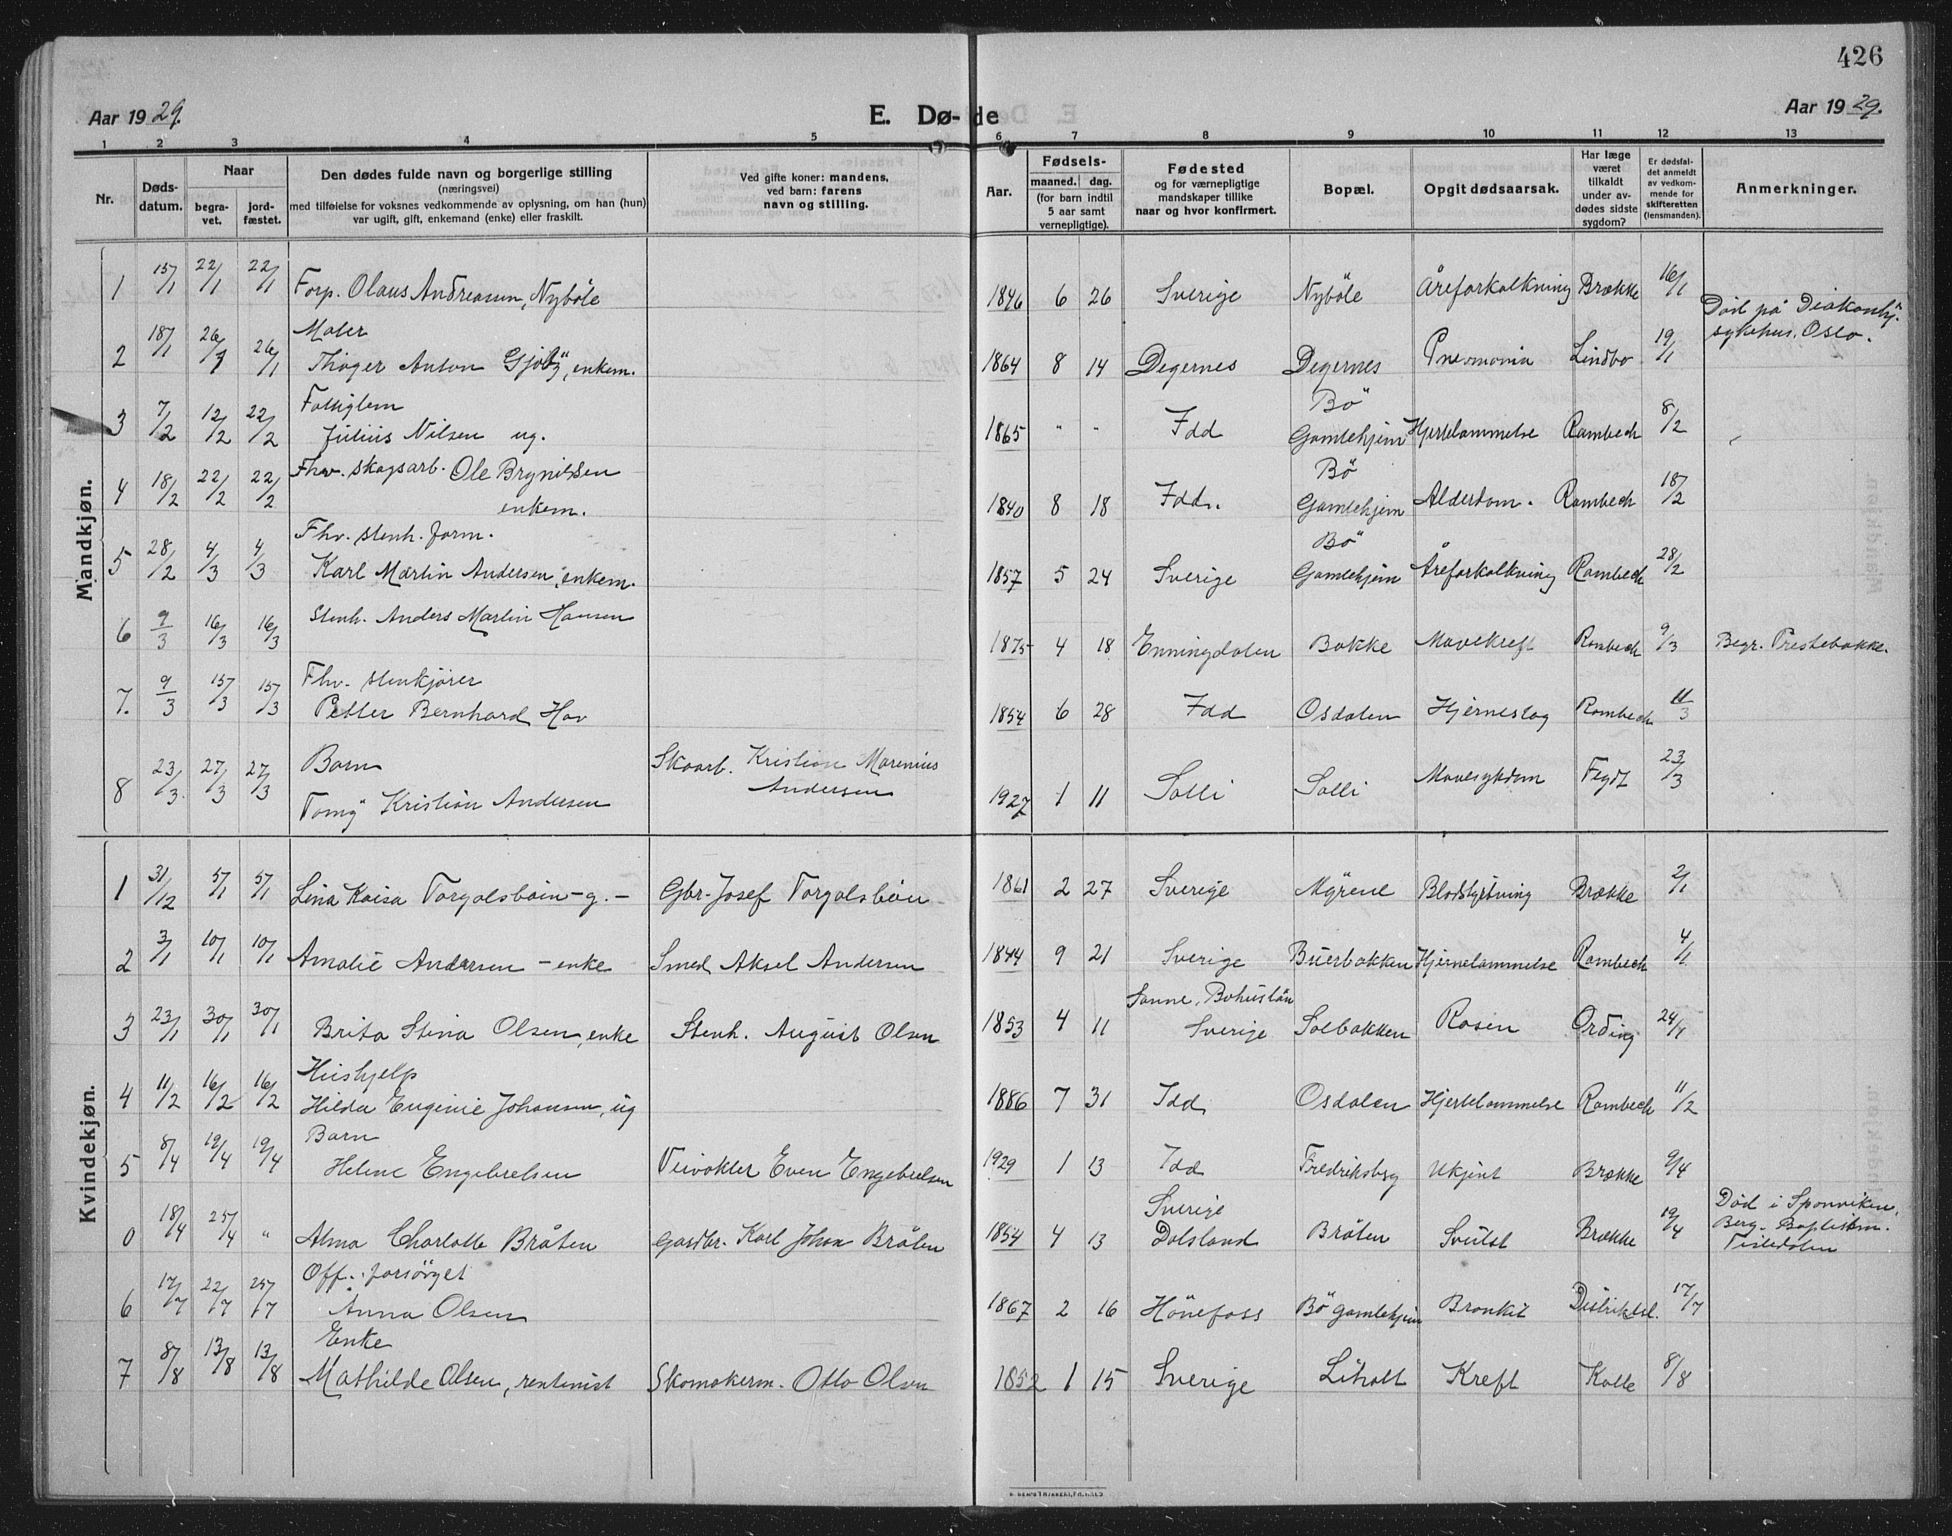 426
Aar 1929.
E. Dø-de
Aar 1929.
1 2 3 4 5 6 7 8 9 10 11 12 13
Nr.
Døds-datum.
Naar
begra-vet.
jord-fæstet.
Den dødes fulde navn og borgerlige stilling
(næringsvei)
med tilføielse for voksnes vedkommende av oplysning, om han (hun)
var ugift, gift, enkemand (enke) eller fraskilt.
Ved gifte koner: mandens,
ved barn: farens
navn og stilling.
Aar.
Fødsels-
maaned. dag.
(for barn indtil
5 aar samt
vernepligtige).
Fødested
og for værnepligtige
mandskaper tillike
naar og hvor konfirmert.
Bopæl.
Opgit dødsaarsak.
Har læge
været
tilkaldt
under av-
dødes sidste
sygdom?
Er dødsfal-
det anmeldt
av vedkom-
mende for
skifteretten
(lensmanden).
Anmerkninger.
Mandkjøn.
1 15/1 22/1 22/1 Forp. Olaus Andreasen, Nyböle 1846 6 26 Sverige Nyböle Åreforkalkning Brække 16/1
Maler
2 18/1 26/1 26/1 Thøger Anton, enkem. 1864 8 14 Degernes Degernes Pneomonia Lindbo 19/1 Död på Diakonhj. sykehus, Oslo.
Fattiglem
3 7/2 12/2 22/2 Julius Nilsen ug. 1865 " " Idd Bö Gamlehjem Hjertelammelse Rambech 8/2
4 18/2 22/2 22/2 Fhv. skogsarb. Ole Brynilsen enkem. 1840 8 18 Idd. Bö Gamlehjem Alderdom. Rambech 18/2
Fhv. stenh. form.
5 28/2 4/3 4/3 Karl Martin Andersen, enkem. 1857 5 24 Sverige Bö Gamlehjem Åreforkalkning Rambech 28/2
6 9/3 16/3 16/3 Stenh. Anders Martin Hansen 1875 4 18 Enningdalen Bakke Mavekreft Rambech 9/3 Begr. Prestebakke.
Fhv. stenkjører
7. 9/3 15/3 15/3 Petter Bernhard Hov 1854 6 28 Idd Osdalen Hjerneslag Rambech 11/3
Barn
8 23/3 27/3 27/3 Tomy Kristian Andersen Skoarb. Kristian Marenius Andersen 1927 1 11 Solli Solli Mavesykdom 23/3
Kvindekjøn.
1 31/12 5/1 5/1 Lina Kaisa Torgalsböin - g. - Gbr. Josef Torgalsböin 1861 2 27 Sverige Myrene Blodstyrtning Brække 2/1
2 3/1 10/1 10/1 Amalie Andersen - enke Smed Aksel Andersen 1844 9 21 Sverige Buerbakken Hjernelammelse Rambech 4/1
3 23/1 30/1 30/1 Brita Stina Olsen, enke Stenh. August Olsen 1853 4 11 Sanne, Bohuslän Sverige Solbakken Rosen Ording 24/1
Hushjelp
4 11/2 16/2 16/2 Hilda Eugenie Johansen, ug 1886 7 31 Idd Osdalen Hjertelammelse Rambech 11/2
Barn
5 8/4 19/4 19/4 Helene Engebretsen Veivokter Even Engebretsen 1929 1 13 Idd Fredriksberg Ukjent Brække 9/4
0 18/4 25/4 " Alma Charlotte Bråten Gardbr. Karl Johan Bråten 1854 4 13 Sverige Dalsland Bråten Svulst Brække 19/4 Död i Sponviken. Berg. Baptism. Tistedalen
Off. forsørget
6 17/7 22/7 25/7 Anna Olsen 1867 2 16 Hönefoss Bö gamlehjem Bronkit Distriktsl. 17/7
Enke
7 8/8 13/8 13/8 Mathilde Olsen, rentenist Skomakerm. Otto Olsen 1852 1 15 Sverige Liholt Kreft Kolle 8/8